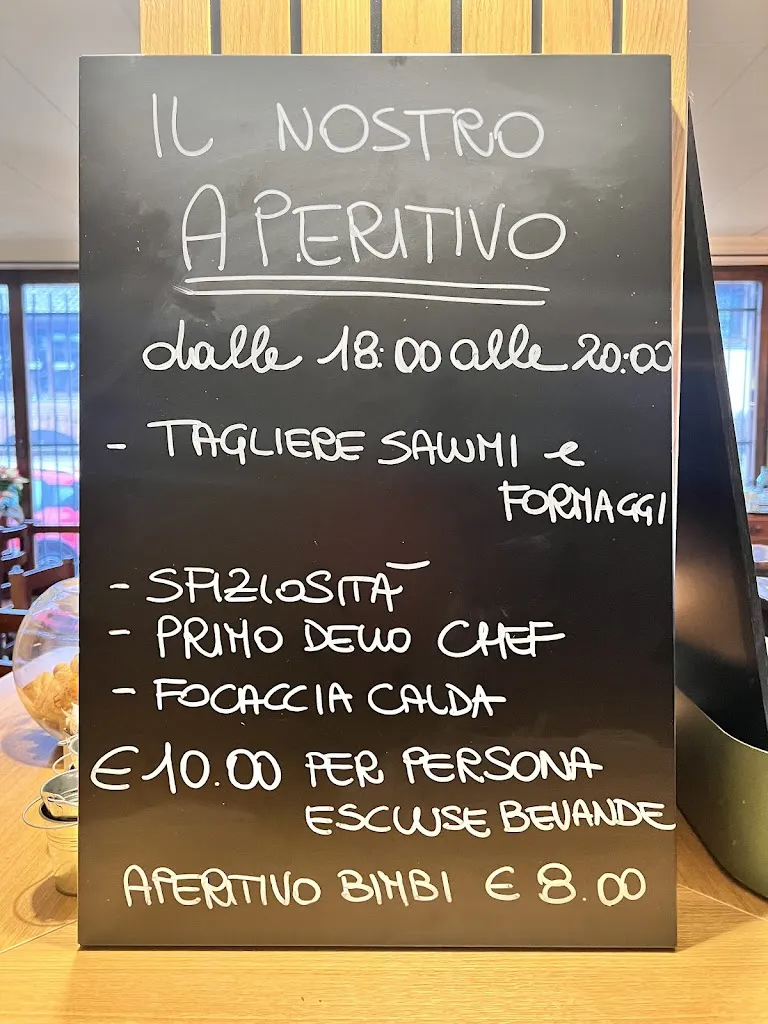 IL NOSTRO
APERITIVO
dalle 18:00 alle 20:00
- TAGLIERE SALUMI e
FORMAGGI
- SFIZIOSITÀ
- PRIMO DELLO CHEF
- FOCACCIA CALDA
€ 10.00 PER PERSONA
ESCLUSE BEVANDE
APERITIVO BIMBI € 8.00